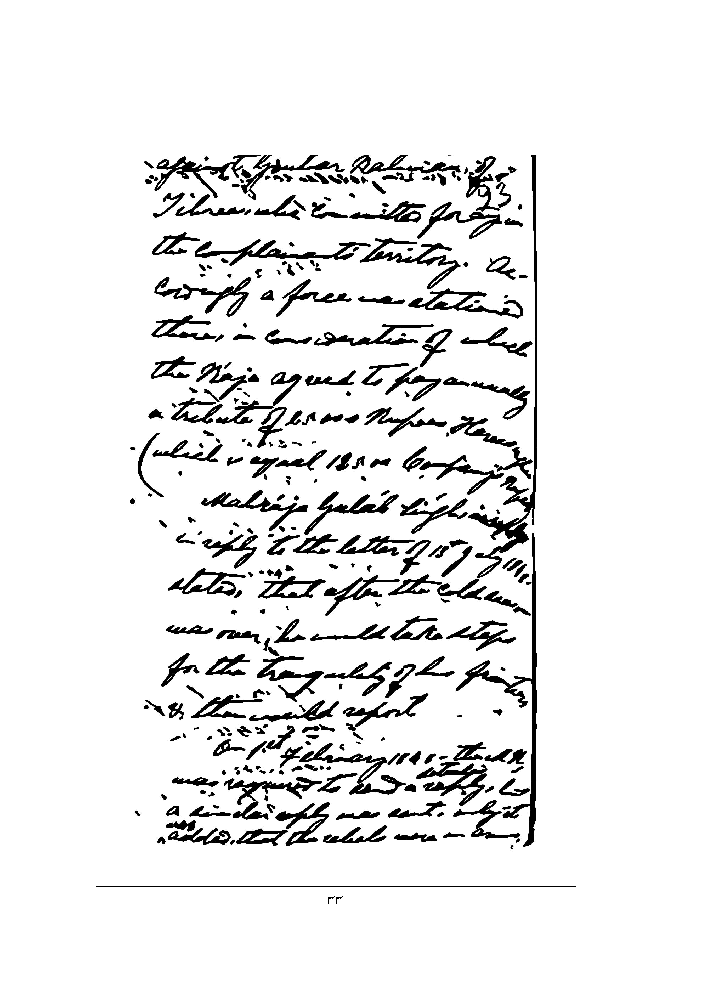 against Gouhar Rahman of
93
Tibree, who committed foray in
the complainants territory. Ac-
cordingly a force was stationed
there, in consideration of which
the Raja agreed to pay annually
a tribute of Rupees
(which is equal Company's
Maharaja Gulab Singh
in reply to the letter of 15th July
stated, that after the cold season
was over, he would take steps
for the tranquility of his frontier
& then would report
On 1st February 1848 - the
was required to send a reply,
detailed
a similar reply was sent, only it
was
added, that the rebels were in
٣٣